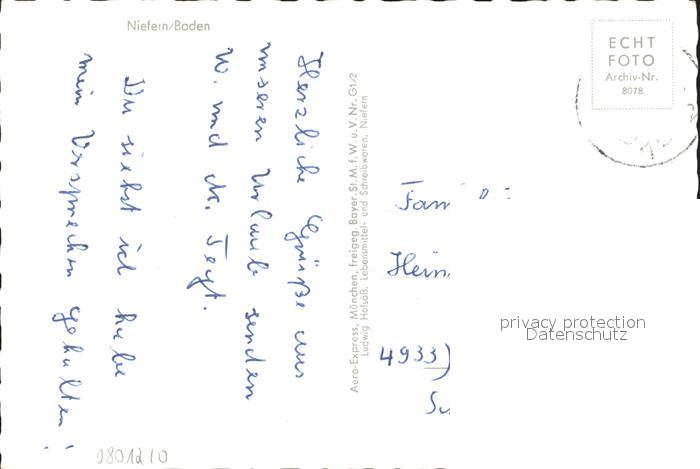 Niefern/Baden
Herzliche Grüße aus
unserem Urlaub senden
W. und M. Feyt.
Du siehst ich habe
mein Versprechen gehalten!
Aero-Express, München, freigeg. Bayer. St. M. f. W. u. V. Nr. G1/2
Ludwig Hofsäß, Lebensmittel- und Schreibwaren, Niefern
ECHT
FOTO
Archiv-Nr.
8078
Fam
Hein
4933
privacy protection
Datenschutz
0801210